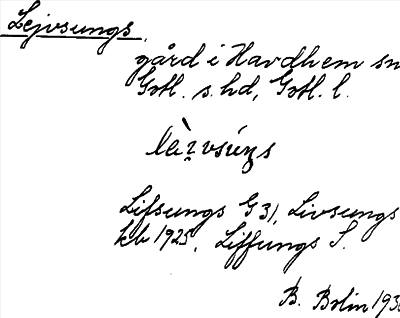 Lejvsungs.
gård i Havdhem sn
Gotl. s. hd, Gotl. l.
Lifsungs G 31, Livsungs
kb 1925, Liffungs S.
B. Bolin 193